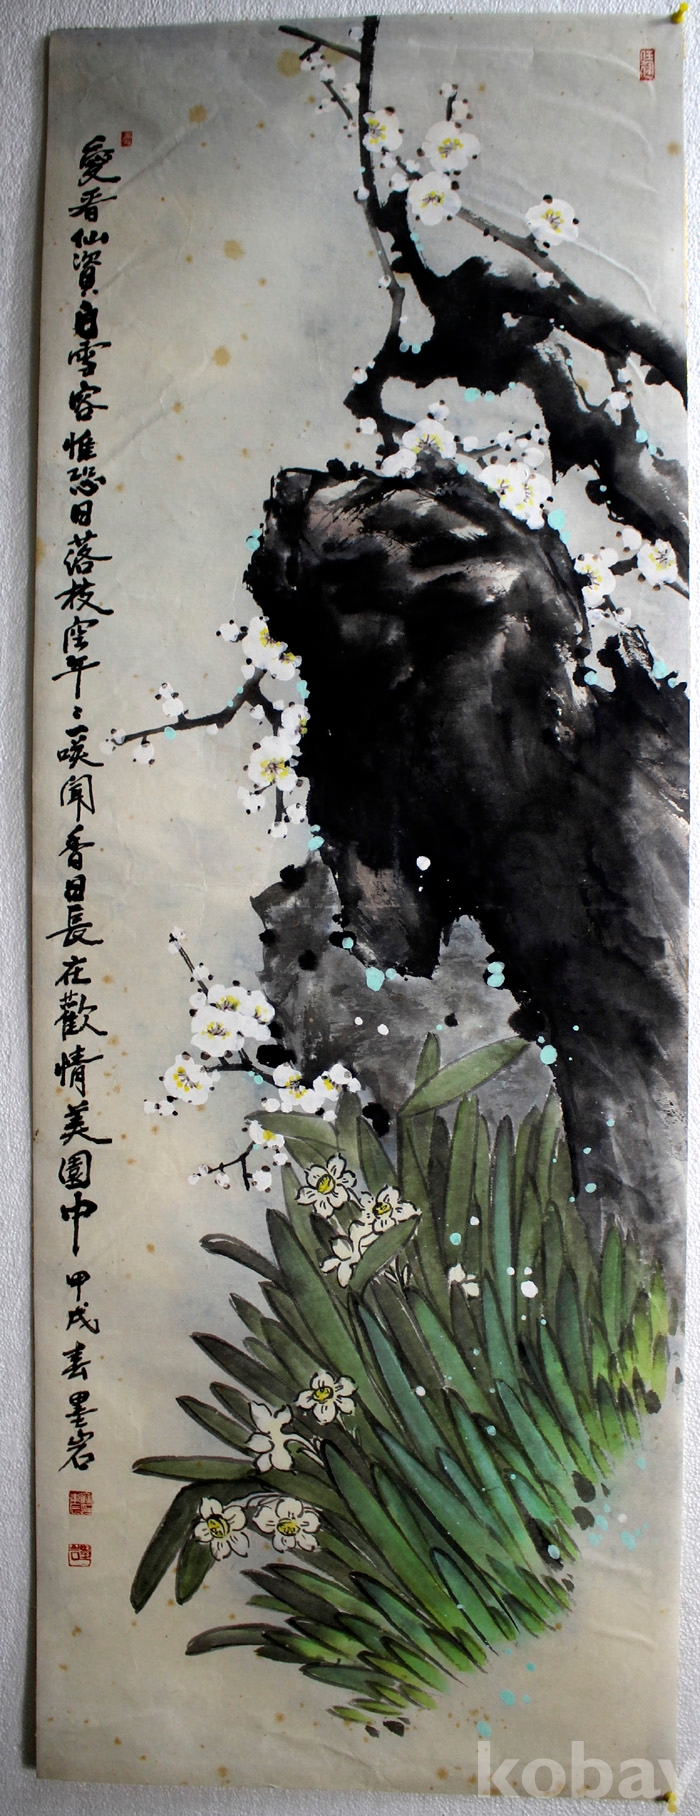 愛看仙資白雪容惟恐日落枝空年〻一嗅聞香日長在歡情美園中
甲戌春墨岩
kobay